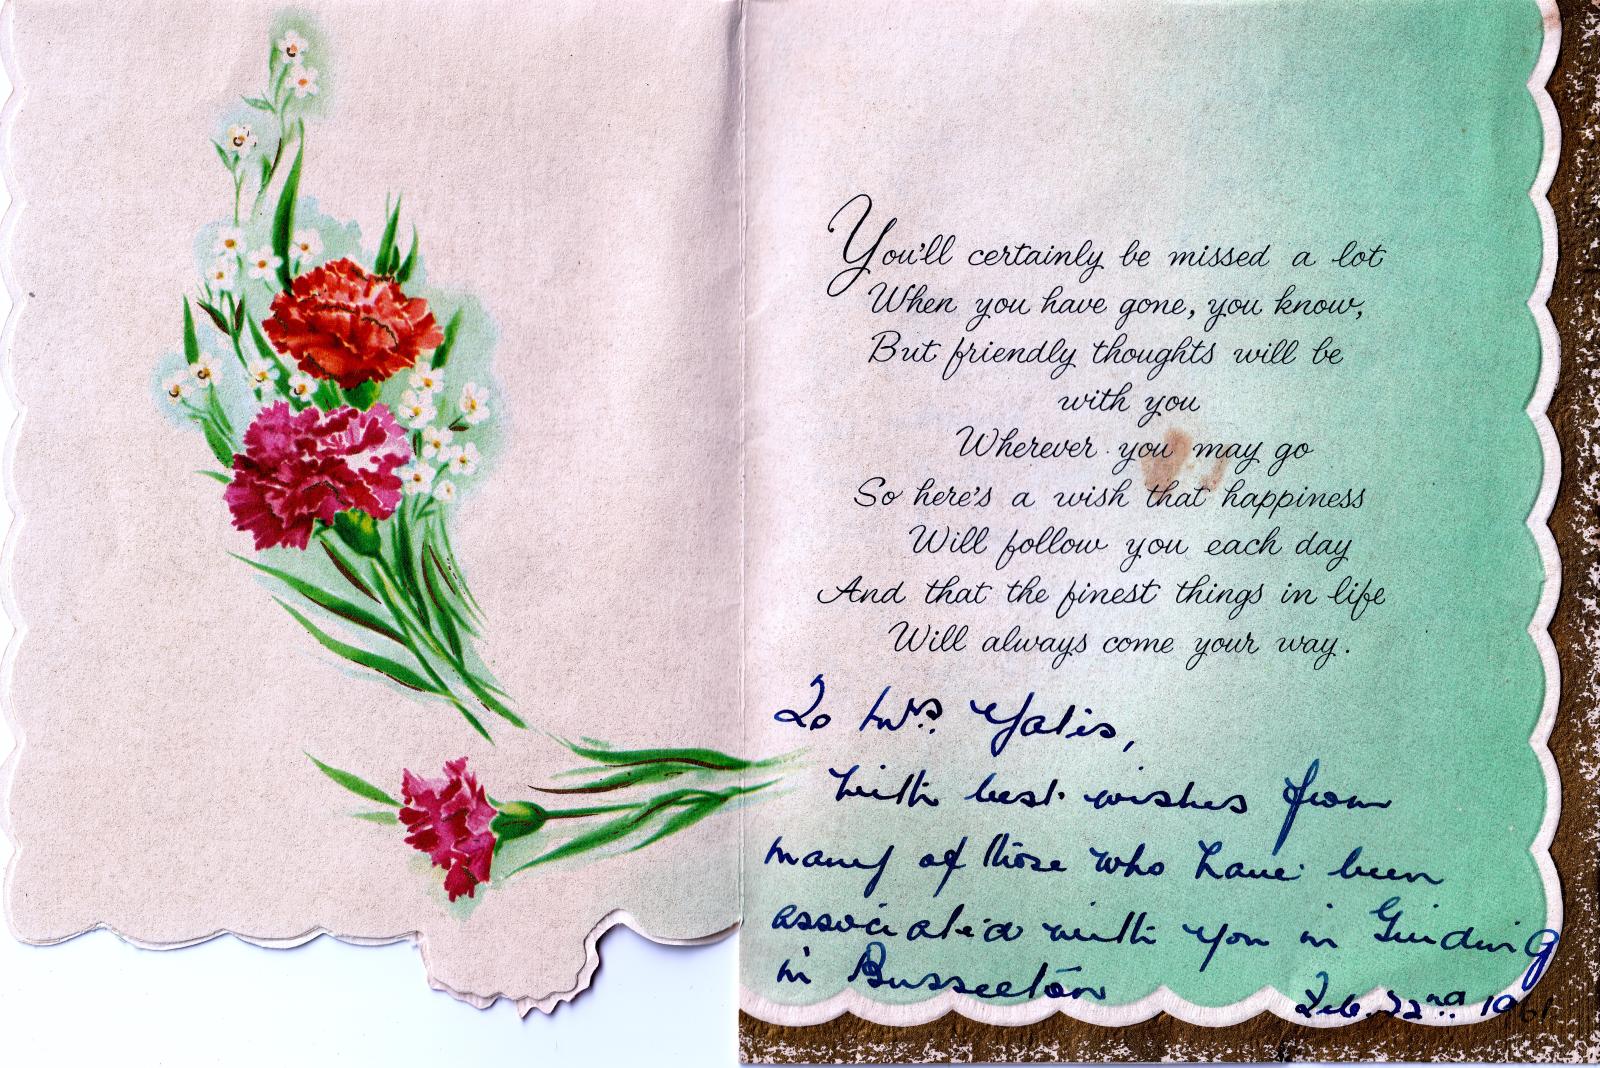 You'll certainly be missed a lot
When you have gone, you know,
But friendly thoughts will be
with you
Wherever you may go
So here's a wish that happiness
Will follow you each day
And that the finest things in life
Will always come your way.
To Mrs. Yates,
With best wishes from
many of those who have been
associated with you in Guiding
in Busselton
Feb. 22nd. 1961